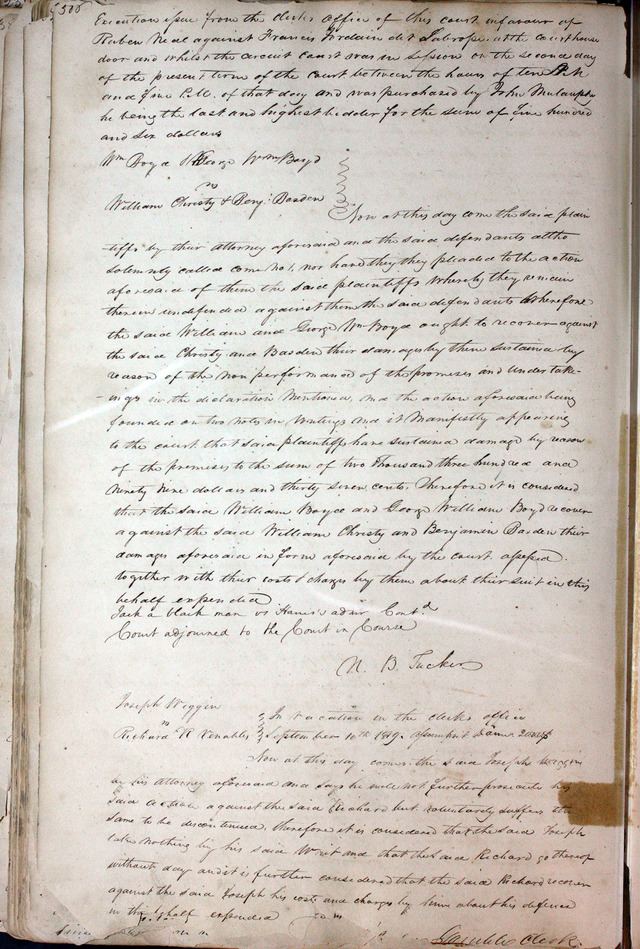 Execution issue from the clerks office of this court in favour of
Ruben Neal against Francis Jordain det Labrose at the courthouse
door and whilst the circuit court was in session on the second day
of the present term of the court between the hours of ten A.M
and five P.M. of that day and was purchased by John
he being the last and highest bidder for the sum of five hundred
and six dollars
Wm Boyd & George Wm Boyd
vs
William Christy & Benj: Basden
Now at this day come the said plain
-tiffs by their attorney aforesaid and the said defendants altho
solemnly called come not, nor have they pleaded to the action
aforesaid of them the said plaintiffs whereby they remain
therein undefended against them the said defendants Wherefore
the said William and George Wm Boyd ought to recover against
the said Christy and Basden their damages by them sustained by
reason of the non performance of the promises and undertak-
-ings in the declaration mentioned, and the action aforesaid being
founded on two notes in writing and it manifestly appearing
to the court that said plaintiffs have sustained damage by reason
of the premises to the sum of two thousand three hundred and
ninety nine dollars and thirty seven cents. Therefore it is considered
that the said William Boyd and George William Boyd recover
against the said William Christy and Benjamin Basden their
damages aforesaid in form aforesaid by the court assessed
together with their costs & charges by them about their suit in this
behalf expended
Jack a black man vs Harris's admr Contd
Court adjourned to the Court in Course
N. B. Tucker
Joseph Wiggin
vs
Richard R Venables
In vacation in the clerks office
September 10th 1819. assumpsit
Now at this day comes the said Joseph Wiggin
by his Attorney aforesaid and says he will not further prosecute his
said action against the said Richard but voluntarily suffers the
same to be discontinued, therefore it is considered that the said Joseph
take nothing by his said Writ and that the said Richard go thereof
without day and it is further considered that the said Richard recover
against the said Joseph his costs and charges by him about his defence
in this behalf expended
Gamble Clerk